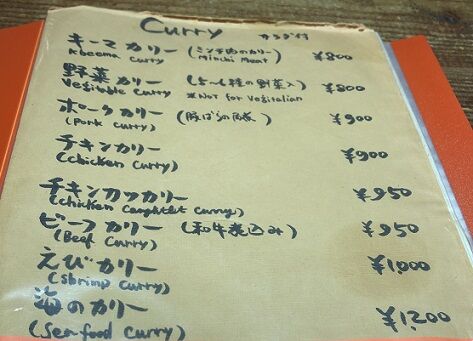 Curry サラダ付
キーマカリー (ミンチ肉のカリー) ¥800
Kheema curry Minchi Meat
野菜カリー (5~6種の野菜入) ¥800
Vegitable Curry *Not for Vegitalian
ポークカリー (豚ばらの豚) ¥900
(pork curry)
チキンカリー ¥900
(chicken curry)
チキンカツカリー ¥950
(chicken curry)
ビーフカリー (和牛煮込み) ¥950
(Beef curry)
えびカリー ¥1000
(shrimp curry)
海のカリー ¥1,200
(Sea food curry)